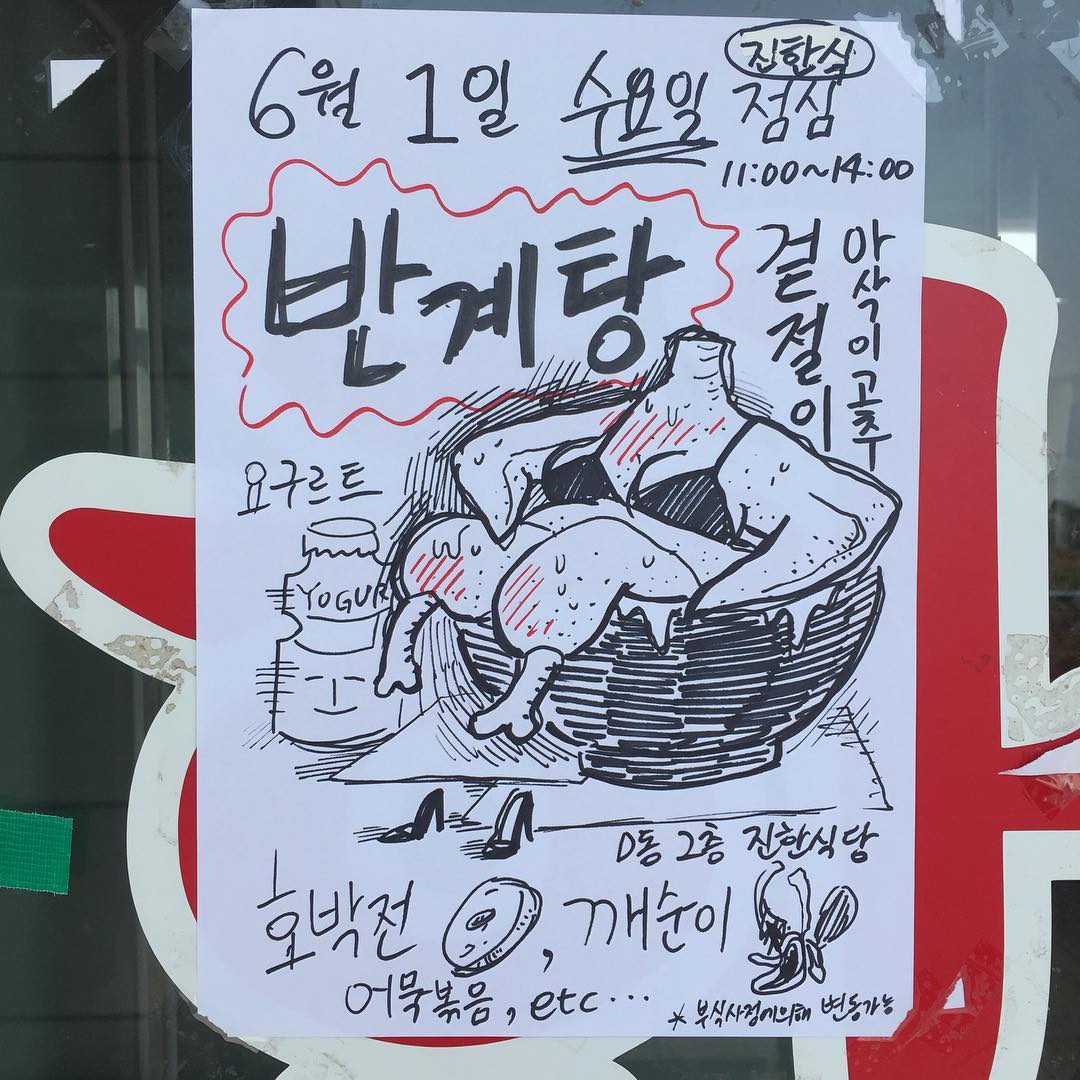 6월 1일 수요일 진한식 점심
11:00~14:00
반계탕
겉절이
아삭이고추
요구르트
YOGUR
D동 2층 진한식당
호박전, 깨순이
어묵볶음, etc...
* 부식사정에의해 변동가능